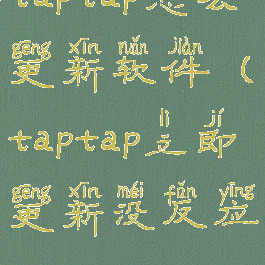 taptap怎么
gēng xīn ruǎn jiàn
更新软件(
lì jí
taptap立即
gēng xīn méi fǎn yīng
更新没反应